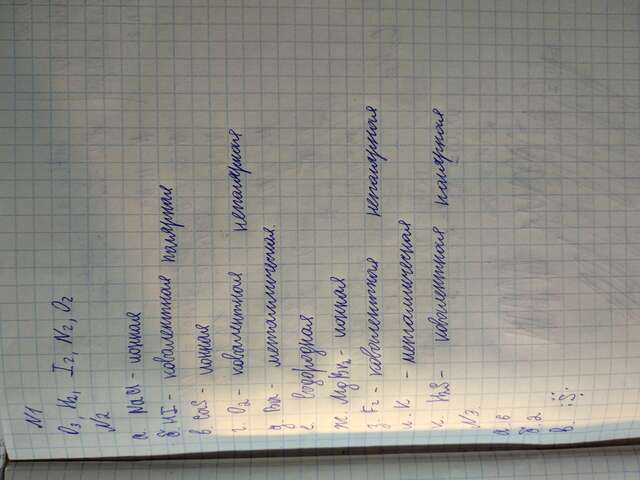 N1
O3, H2, I2, N2, O2
N2
а. NaCl - ионная
б. HI - ковалентная полярная
в. CaS - ионная
г. O2 - ковалентная неполярная
д. Ba - металлическая.
е. водородная
ж. MgBr2 - ионная
з. F2 - ковалентная неполярная
и. K - металлическая
к. H2S - ковалентная полярная
N3.
а. 6
б. 2
в. :S: